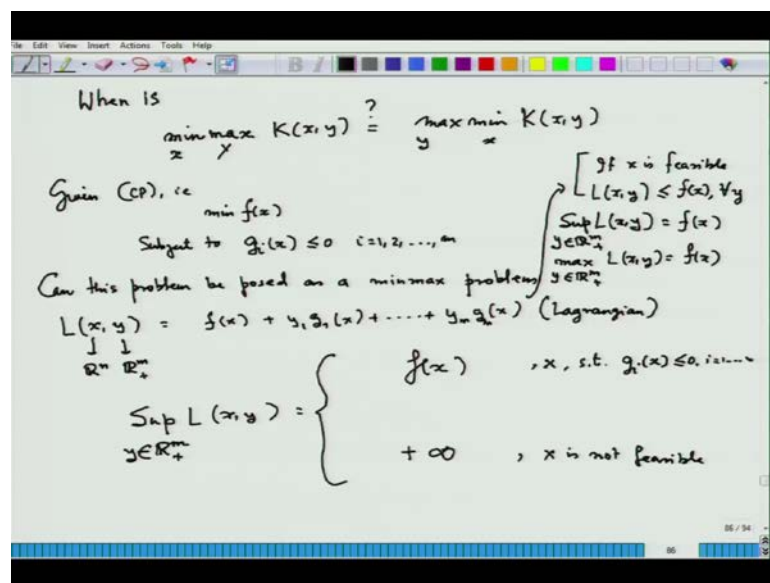 File Edit View Insert Actions Tools Help
When is
min max K(x, y) ?= max min K(x, y)
x y y x
Given (CP), ie
min f(x)
Subject to gᵢ(x) ≤ 0 i=1,2,...,m
[If x is feasible
L(x,y) ≤ f(x), ∀y
Sup L(x,y) = f(x)
y∈ℝᵐ₊
max L(x,y) = f(x)
y∈ℝᵐ₊
Can this problem be posed as a minmax problem
L(x, y) = f(x) + y₁g₁(x) + ---- + yₘgₘ(x) (Lagrangian)
↓ ↓
ℝⁿ ℝᵐ₊
Sup L(x, y) = { f(x) , x, s.t. gᵢ(x) ≤ 0, i=1,...
y∈ℝᵐ₊
+ ∞ , x is not feasible
86 / 94
86